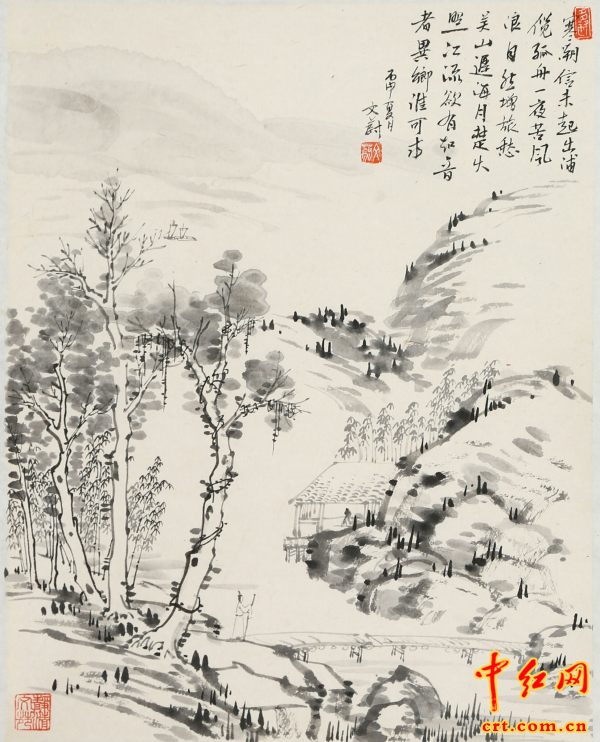 寒潮信未起出浦
纜孤舟一夜苦風
浪自然增旅愁
吴山遲海月楚火
照江流欲有知音
者異鄉誰可求
丙申夏月
中红网
crt.com.cn